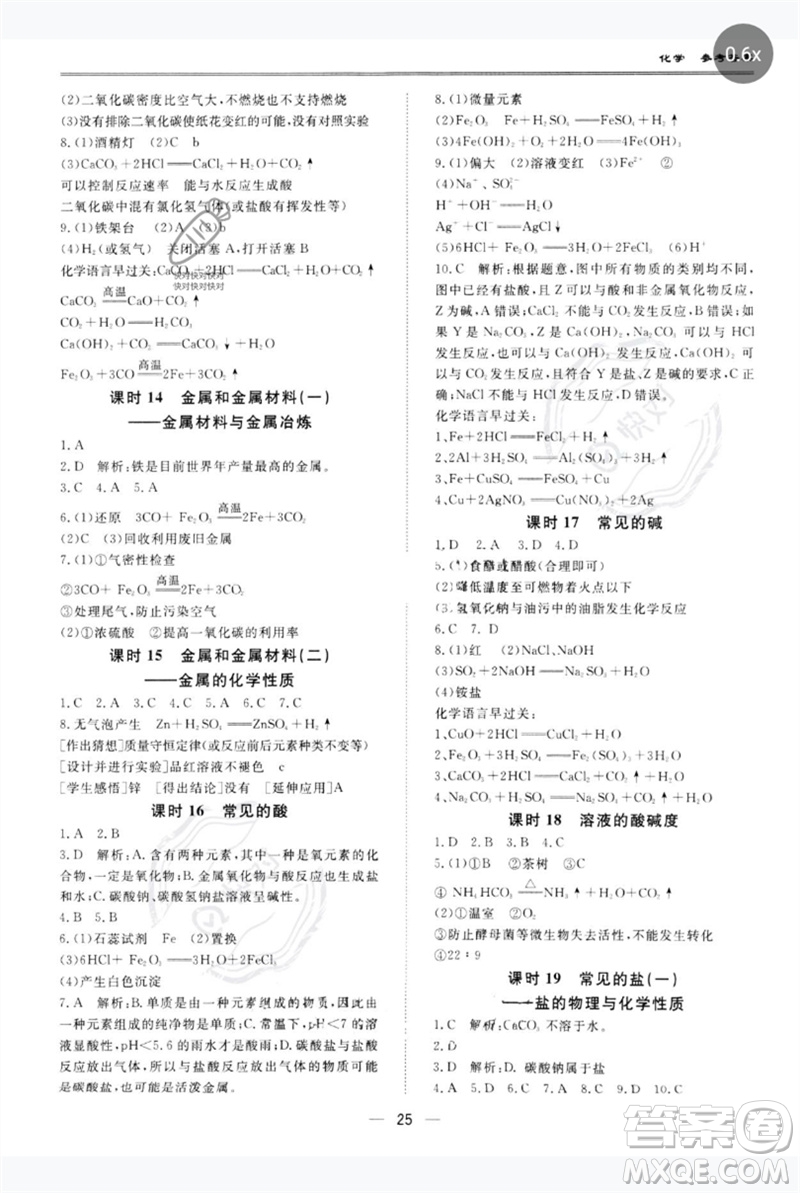 化学 参考
0.6x
(2)二氧化碳密度比空气大,不燃烧也不支持燃烧
(3)没有排除二氧化碳使纸花变红的可能,没有对照实验
8.(1)酒精灯 (2)C b
(3)CaCO₃+2HCl══CaCl₂+H₂O+CO₂↑
可以控制反应速率 能与水反应生成酸
二氧化碳中混有氯化氢气体(或盐酸有挥发性等)
9.(1)铁架台 (2)A (3)b
(4)H₂(或氢气) 关闭活塞A,打开活塞B
化学语言早过关:CaCO₃+2HCl══CaCl₂+H₂O+CO₂↑
快对快对快对
快对快对快对
CaCO₃ 高温══ CaO+CO₂↑
Ca(OH)₂+CO₂══CaCO₃↓+H₂O
Fe₂O₃+3CO 高温══ 2Fe+3CO₂
课时14 金属和金属材料(一)
——金属材料与金属冶炼
1.A
2.D 解析:铁是目前世界年产量最高的金属。
3.C 4.A 5.A
6.(1)还原 3CO+Fe₂O₃ 高温══ 2Fe+3CO₂
(2)C (3)回收利用废旧金属
7.(1)①气密性检查
②3CO+Fe₂O₃ 高温══ 2Fe+3CO₂
③处理尾气,防止污染空气
(2)①浓硫酸 ②提高一氧化碳的利用率
课时15 金属和金属材料(二)
——金属的化学性质
1.C 2.A 3.A 4.C 5.C 6.A 7.A
8.无气泡产生 Zn+H₂SO₄══ZnSO₄+H₂↑
[作出猜想]质量守恒定律(或反应前后元素种类不变等)
[设计并进行实验]品红溶液不褪色 c
[学生感悟]锌 [得出结论]没有 [延伸应用]A
课时16 常见的酸
1.A 2.B
3.D 解析:A.含有两种元素,其中一种是氧元素的化
合物,一定是氧化物;B.金属氧化物与酸反应生成盐
和水;C.碳酸钠、碳酸氢钠盐溶液呈碱性。
4.B 5.B
6.(1)石蕊试剂 Fe (2)置换
(3)6HCl+Fe₂O₃══2FeCl₃+3H₂O
(4)产生白色沉淀
7.A 解析:A.单质是由一种元素组成的纯净物,由一
种元素组成的纯净物是单质;C.正常雨水pH<7的溶
液显酸性,pH<5.6的雨水是酸雨;D.金属也能与盐酸
反应放出气体,所以与盐酸反应放出气体的不一定是
碳酸盐,也可能是活泼金属。
8.(1)微量元素
(2)Fe₂O₃ Fe+H₂SO₄══FeSO₄+H₂↑
(3)4Fe(OH)₂+O₂+2H₂O══4Fe(OH)₃
9.(1)偏大 (2)溶液变红 (3)Fe²⁺ ②
(4)Na⁺、SO₄²⁻
H⁺+OH⁻══H₂O
Ag⁺+Cl⁻══AgCl↓
(5)6HCl+Fe₂O₃══2FeCl₃+3H₂O
10.C 解析:根据题意,图中所有物质的类别均不同,
图中已经有盐酸,且X能和盐酸和非金属氧化物反应,
Z为碱,A错误;CaCl₂不能与CO₂反应,B错误;
如果Y是Na₂CO₃,Z是Ca(OH)₂,Na₂CO₃可以与HCl
发生反应,也可以与Ca(OH)₂发生反应,Ca(OH)₂可以
与CO₂发生反应,且符合条件Y是盐,Z是碱,C正
确;HNO₃是酸,不能作为Y,D错误。
化学语言早过关:
1.Fe+2HCl══FeCl₂+H₂↑
2.2Al+3H₂SO₄══Al₂(SO₄)₃+3H₂↑
3.Fe+CuSO₄══FeSO₄+Cu
4.Cu+2AgNO₃══Cu(NO₃)₂+2Ag
课时17 常见的碱
1.D 2.A 3.D 4.D
5.(1)食醋或醋酸(合理即可)
(2)降低温度至可燃物着火点以下
(3)氢氧化钠与油污中的油脂发生化学反应
6.C 7.C
8.(1)红 (2)NaCl、NaOH
(3)SO₃+2NaOH══Na₂SO₄+H₂O
(4)铵盐
化学语言早过关:
1.CuO+2HCl══CuCl₂+H₂O
2.Fe₂O₃+3H₂SO₄══Fe₂(SO₄)₃+3H₂O
3.CaCO₃+2HCl══CaCl₂+H₂O+CO₂↑
4.Na₂CO₃+H₂SO₄══Na₂SO₄+H₂O+CO₂↑
课时18 溶液的酸碱度
1.D 2.B 3.B 4.D
5.(1)①B ②茶树 ③C
④NH₄HCO₃ △══ NH₃↑+H₂O+CO₂↑
(2)①温室 ②O₂
③防止酵母菌等微生物失去活性,不能发生反应
④22∶9
课时19 常见的盐(一)
——盐的物理与化学性质
1.C 解析:CaCO₃不溶于水。
2.D
3.D 解析:D.碳酸钠属于盐
4.A 5.D 6.A 7.D 8.A 9.D 10.C
25
答案卷
MXQE.COM